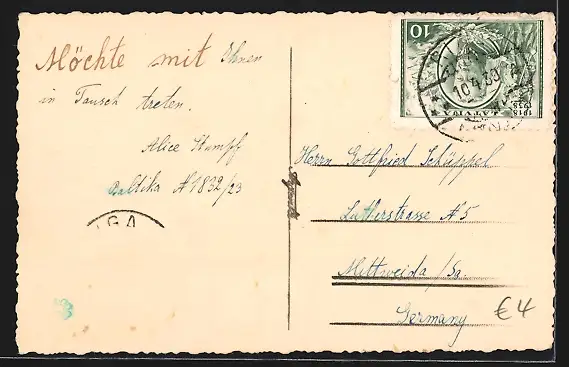 Möchte mit Ihnen
in Tausch treten.
Alice Stumpf
Baltika N 1832/23
IGA
10
LATVIJA
1918
1938
10.4.39
Herrn Gottfried Schüppel
Lutherstrasse N 5
Mittweida / Sa.
Germany
€ 4